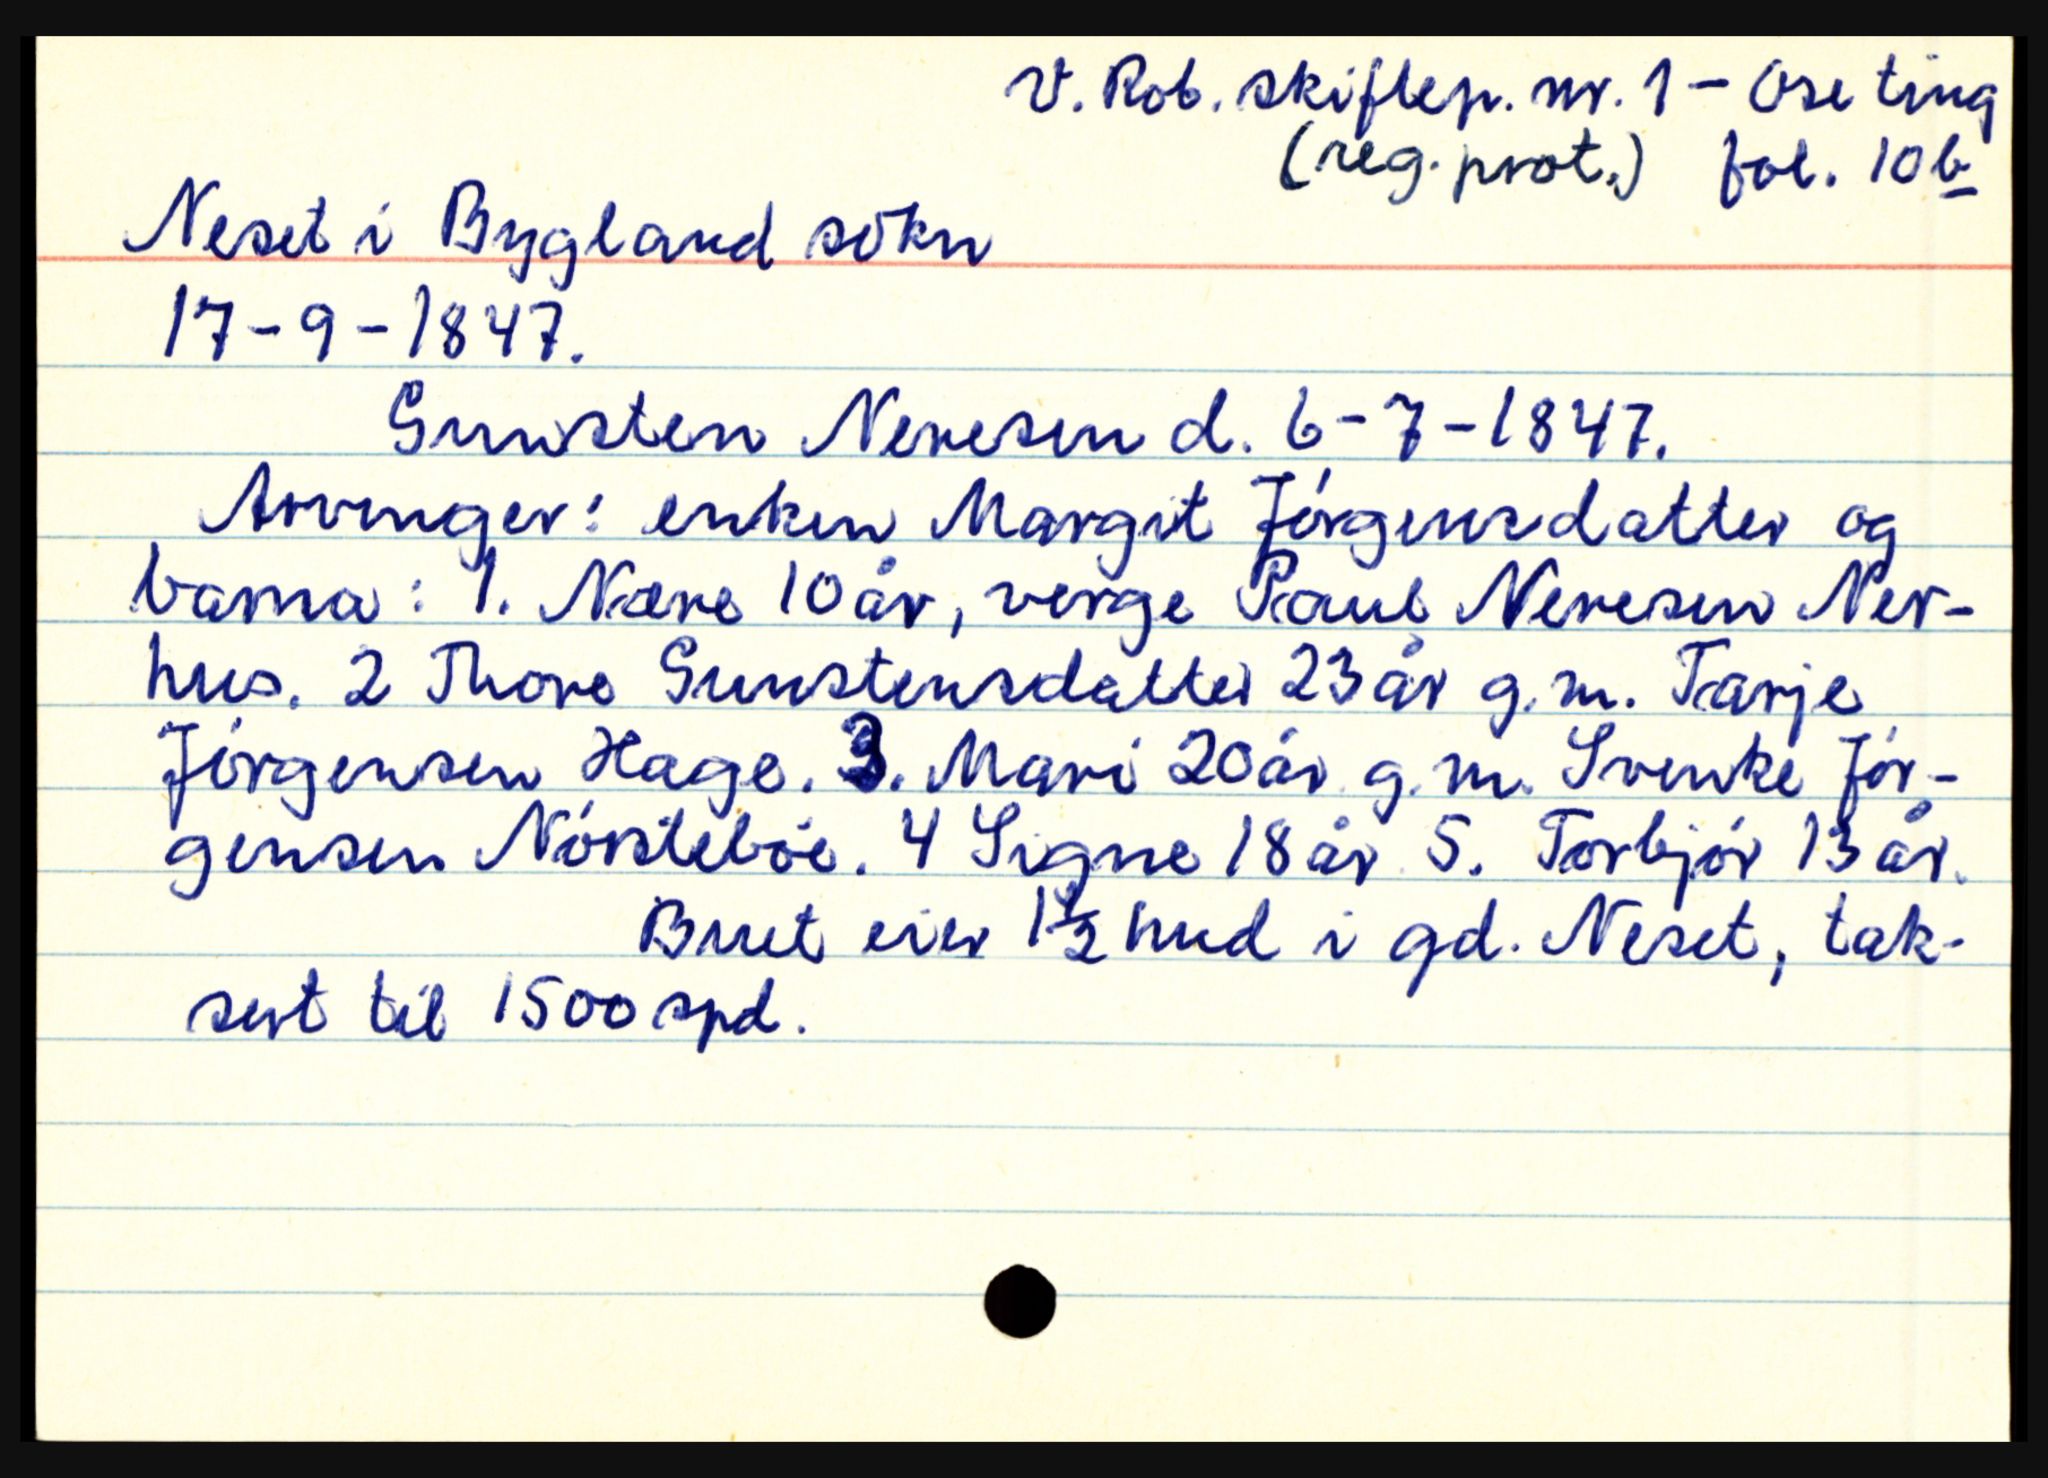 V. Rob. skiftep. nr. 1 - Ose ting
(reg. prot.) fol. 10b
Neset i Bygland sokn
17-9-1847.
Gunsten Neresen d. 6-7-1847.
Arvinger: enken Margit Jórgensdatter og
barna: 1. Nære 10 år, verge Paul Neresen Ner-
hus. 2 Thore Gunstensdatter 23 år g.m. Tarje
Jórgensen Hage. 3. Mari 20 år g.m. Svenke Jór-
gensen Nórstebóe. 4 Signe 18 år 5. Torbjór 13 år.
Buet eier 1 1/2 hud i gd. Neset, tak-
sert til 1500 spd.